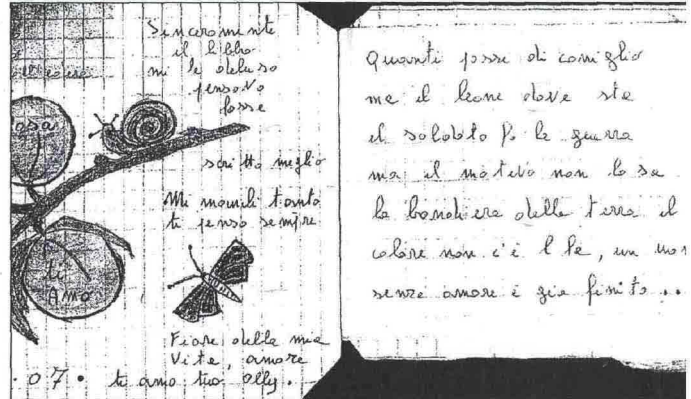 Sinceramente
il libro
mi ha deluso
pensavo
fosse
scritto meglio
osa
Mi manchi tanto
ti penso sempre
ti
Amo
Fiore della mia
Vita, amore
. 07 . ti amo tuo Olly.
Quanti passi di coniglio
ma il leone dove sta
il soldato fa la guerra
ma il motivo non lo sa
la bandiera della terra il
colore non c'è l'ha, un
senza amore è già finito ..